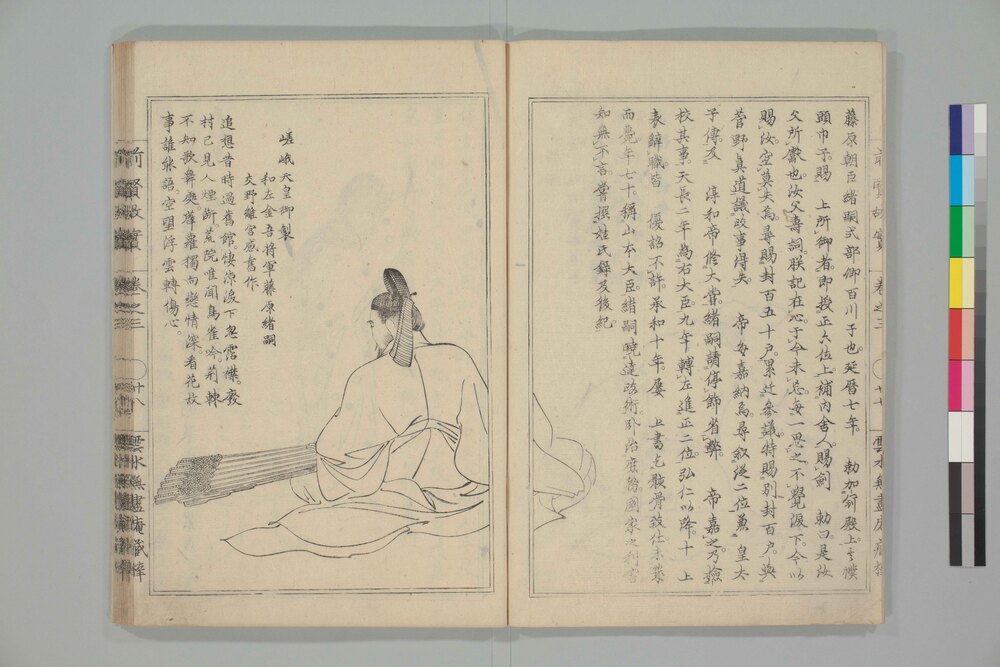 藤原朝臣緒嗣式部卿百川子也延暦七年　勅加冠殿上其幞
頭巾子賜　上所御者即授正六位上補内舎人賜劍　勅曰是汝
父所獻也汝父壽詞朕記在心于今未忘毎一思之不覺涙下今以
賜汝空莫失焉尋賜封百五十戸累迁參議特賜別封百戸與
菅野真道議政事得失　帝毎嘉納焉尋叙從二位兼　皇太
子傅及　淳和帝修大嘗緒嗣請停節省弊　帝嘉之乃檢
校其事天長二年為右大臣九年轉左進正二位弘仁以降十　上
表辭職皆　優詔不許承和十年屡　上書乞骸骨致仕未幾
而薨年七十稱山本大臣緒嗣曉達政術臥治庶務國家之利害
知無不言嘗撰姓氏録及後紀
前賢故實　卷之三　十七
嵯峨天皇御製
和左金吾将軍藤原緒嗣
交野離宮感舊作
追想昔時過舊館悽凉涙下忽霑襟廢
村已見人煙断荒院唯聞鳥雀吟荊棘
不知歌舞處薜蘿獨向戀情深看花故
事誰能語空望浮雲轉傷心
前賢故實　卷之三　十八　雲水無盡庵藏梓